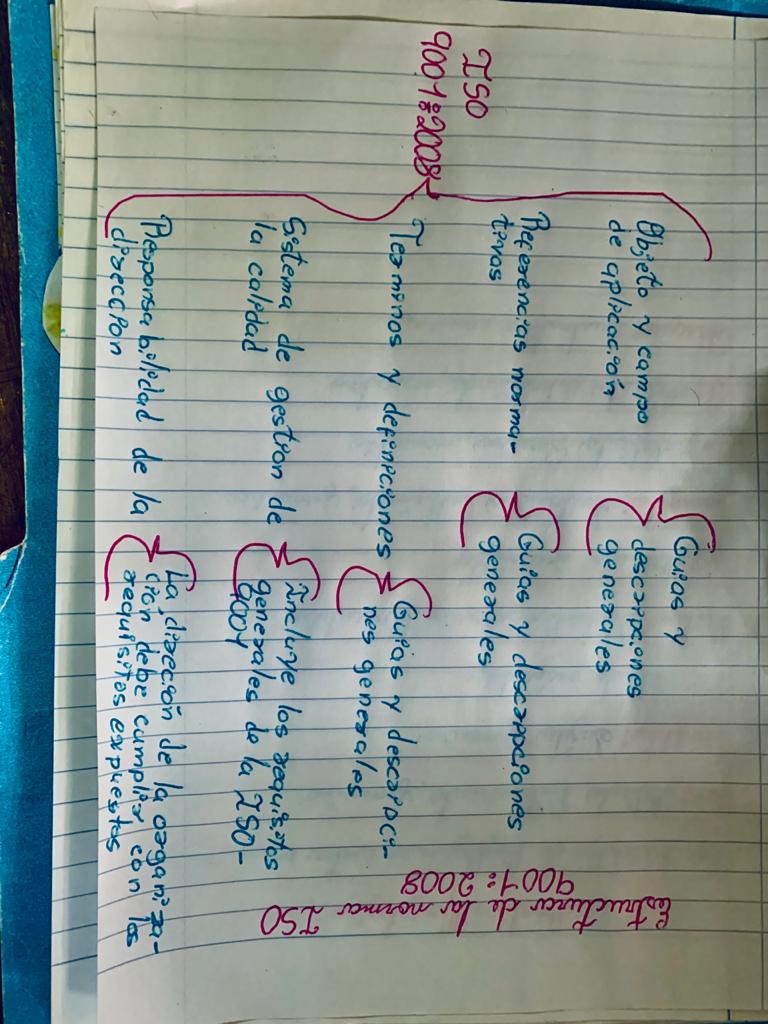 Estructura de la norma ISO
9001:2008
ISO
9001:2008
Objeto y campo
de aplicación
Guias y
descripciones
generales
Referencias norma-
tivas
Guias y descripciones
generales
Terminos y definiciones
Guias y descripci-
nes generales
Sistema de gestion de
la calidad
Incluye los requisitos
generales de la ISO-
9001
Responsabilidad de la
dirección
La direción de la organiza-
ción debe cumplir con los
requisitos expuestos